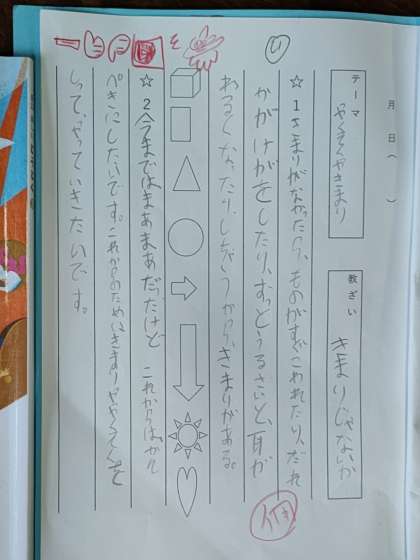 月　日（　）
テーマ
やくそくやきまり
教ざい
きまりじゃないか
☆１きまりがなかったら、ものがすぐこわれたり、だれ
かがけがをしたり、ずっとうるさいと、耳が
わるくなったり、しちゃうから、きまりがある。
☆２今まではまあまあだったけど これからはかん
ぺきにしたいです。これからのためにきまりややくそくを
しって、やっていきたいです。